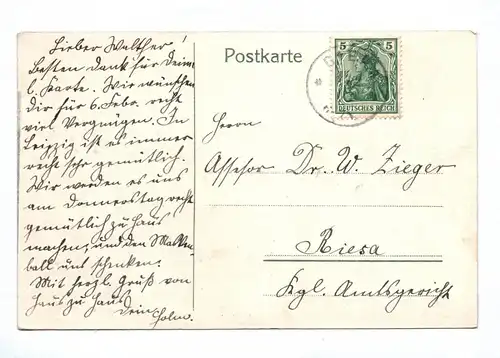 Lieber Walther!
Besten Dank für Deine
l. Karte. Wir wünschen
dir für 6. Febr. recht
viel Vergnügen. In
Leipzig ist es immer
recht sehr gemütlich.
Wir werden es uns
am Donnerstag recht
gemütlich zu Haus
machen, und den Masken-
ball uns schenken.
Mit herzl. Gruß von
Haus zu Haus
Dein Holm.
Postkarte
5 5
DEUTSCHES REICH
Herrn
Assessor Dr. W. Zieger
Riesa
Kgl. Amtsgericht